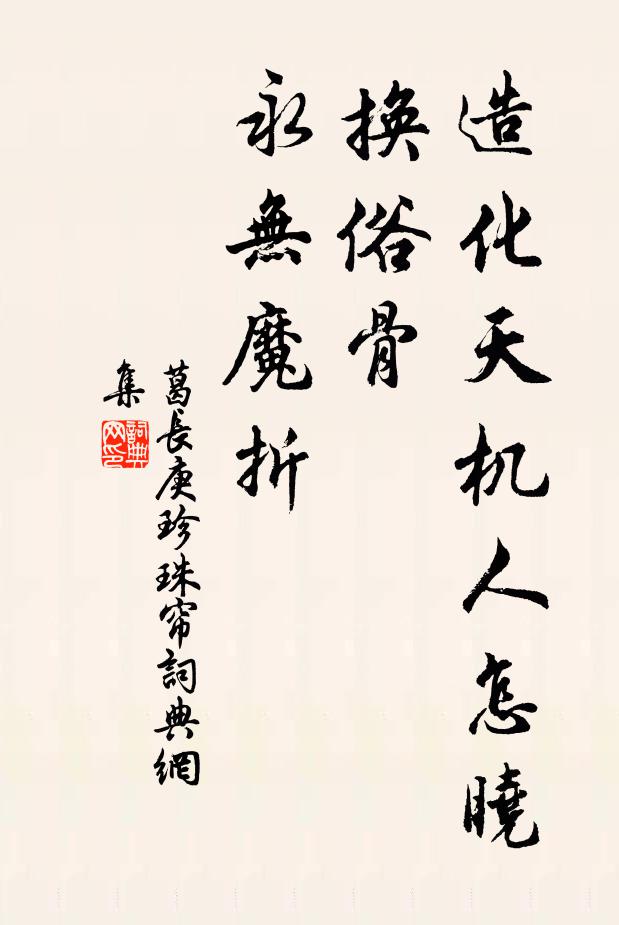 造化天机人怎曉
換俗骨
永無魔折
葛長庚珍珠帘詞典網
集
詞典
网印